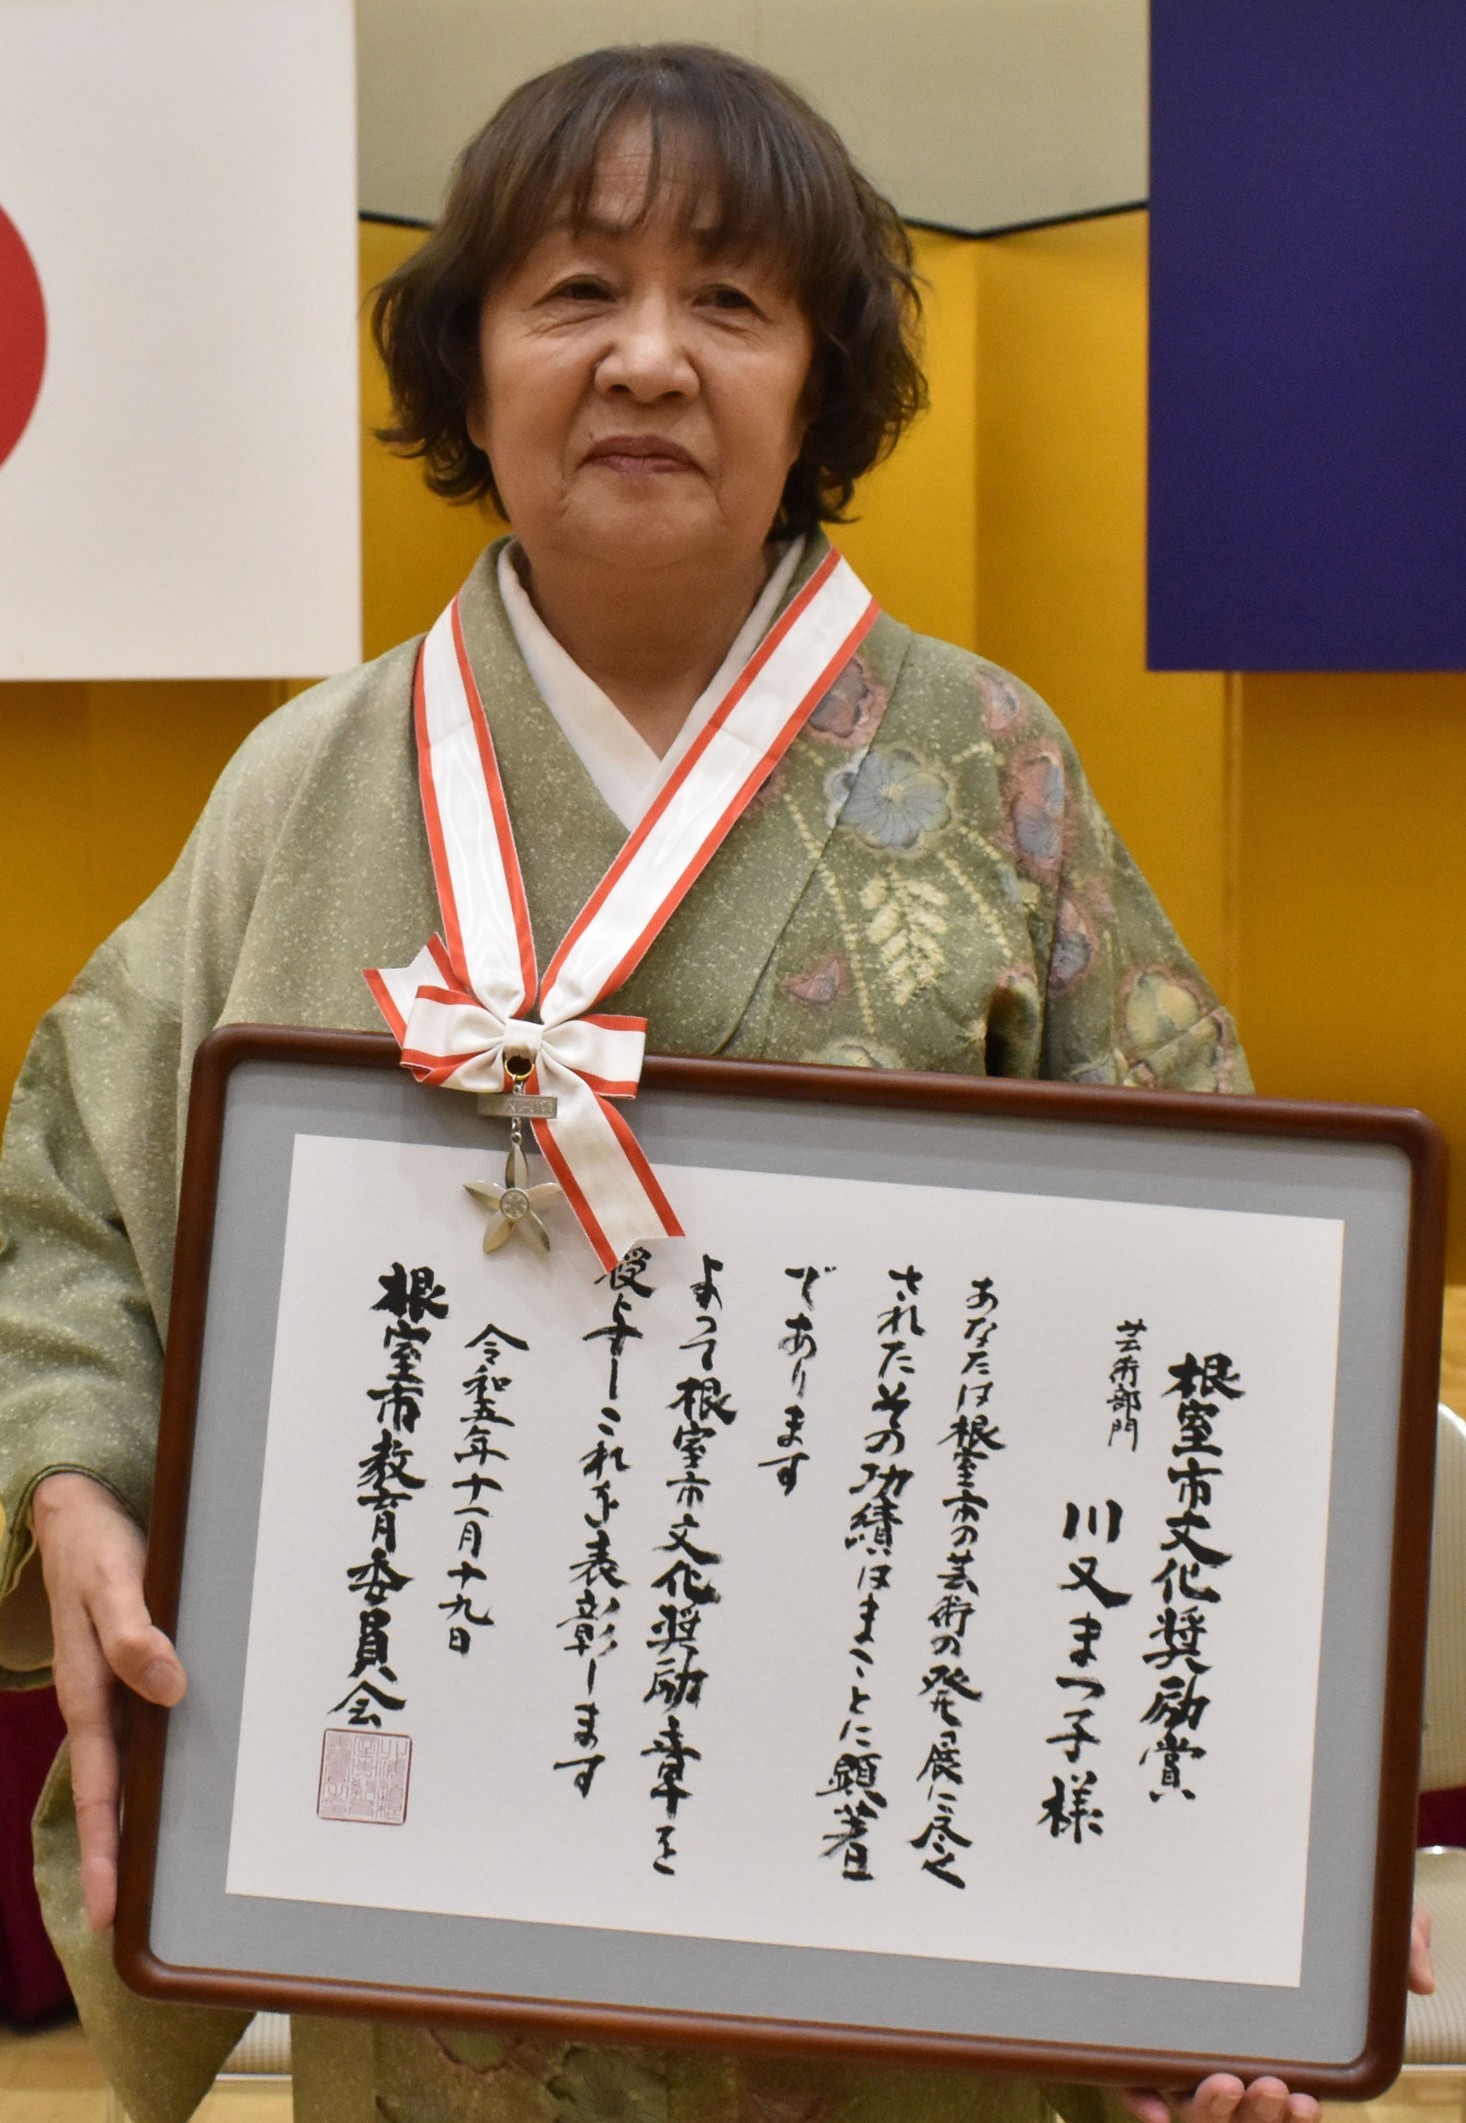 根室市文化奨励賞
芸術部門
川又まつ子様
あなたは根室市の芸術の発展に尽く
されたその功績はまことに顕著
であります
よって根室市文化奨励章を
授与しこれを表彰します
令和五年十一月十九日
根室市教育委員会